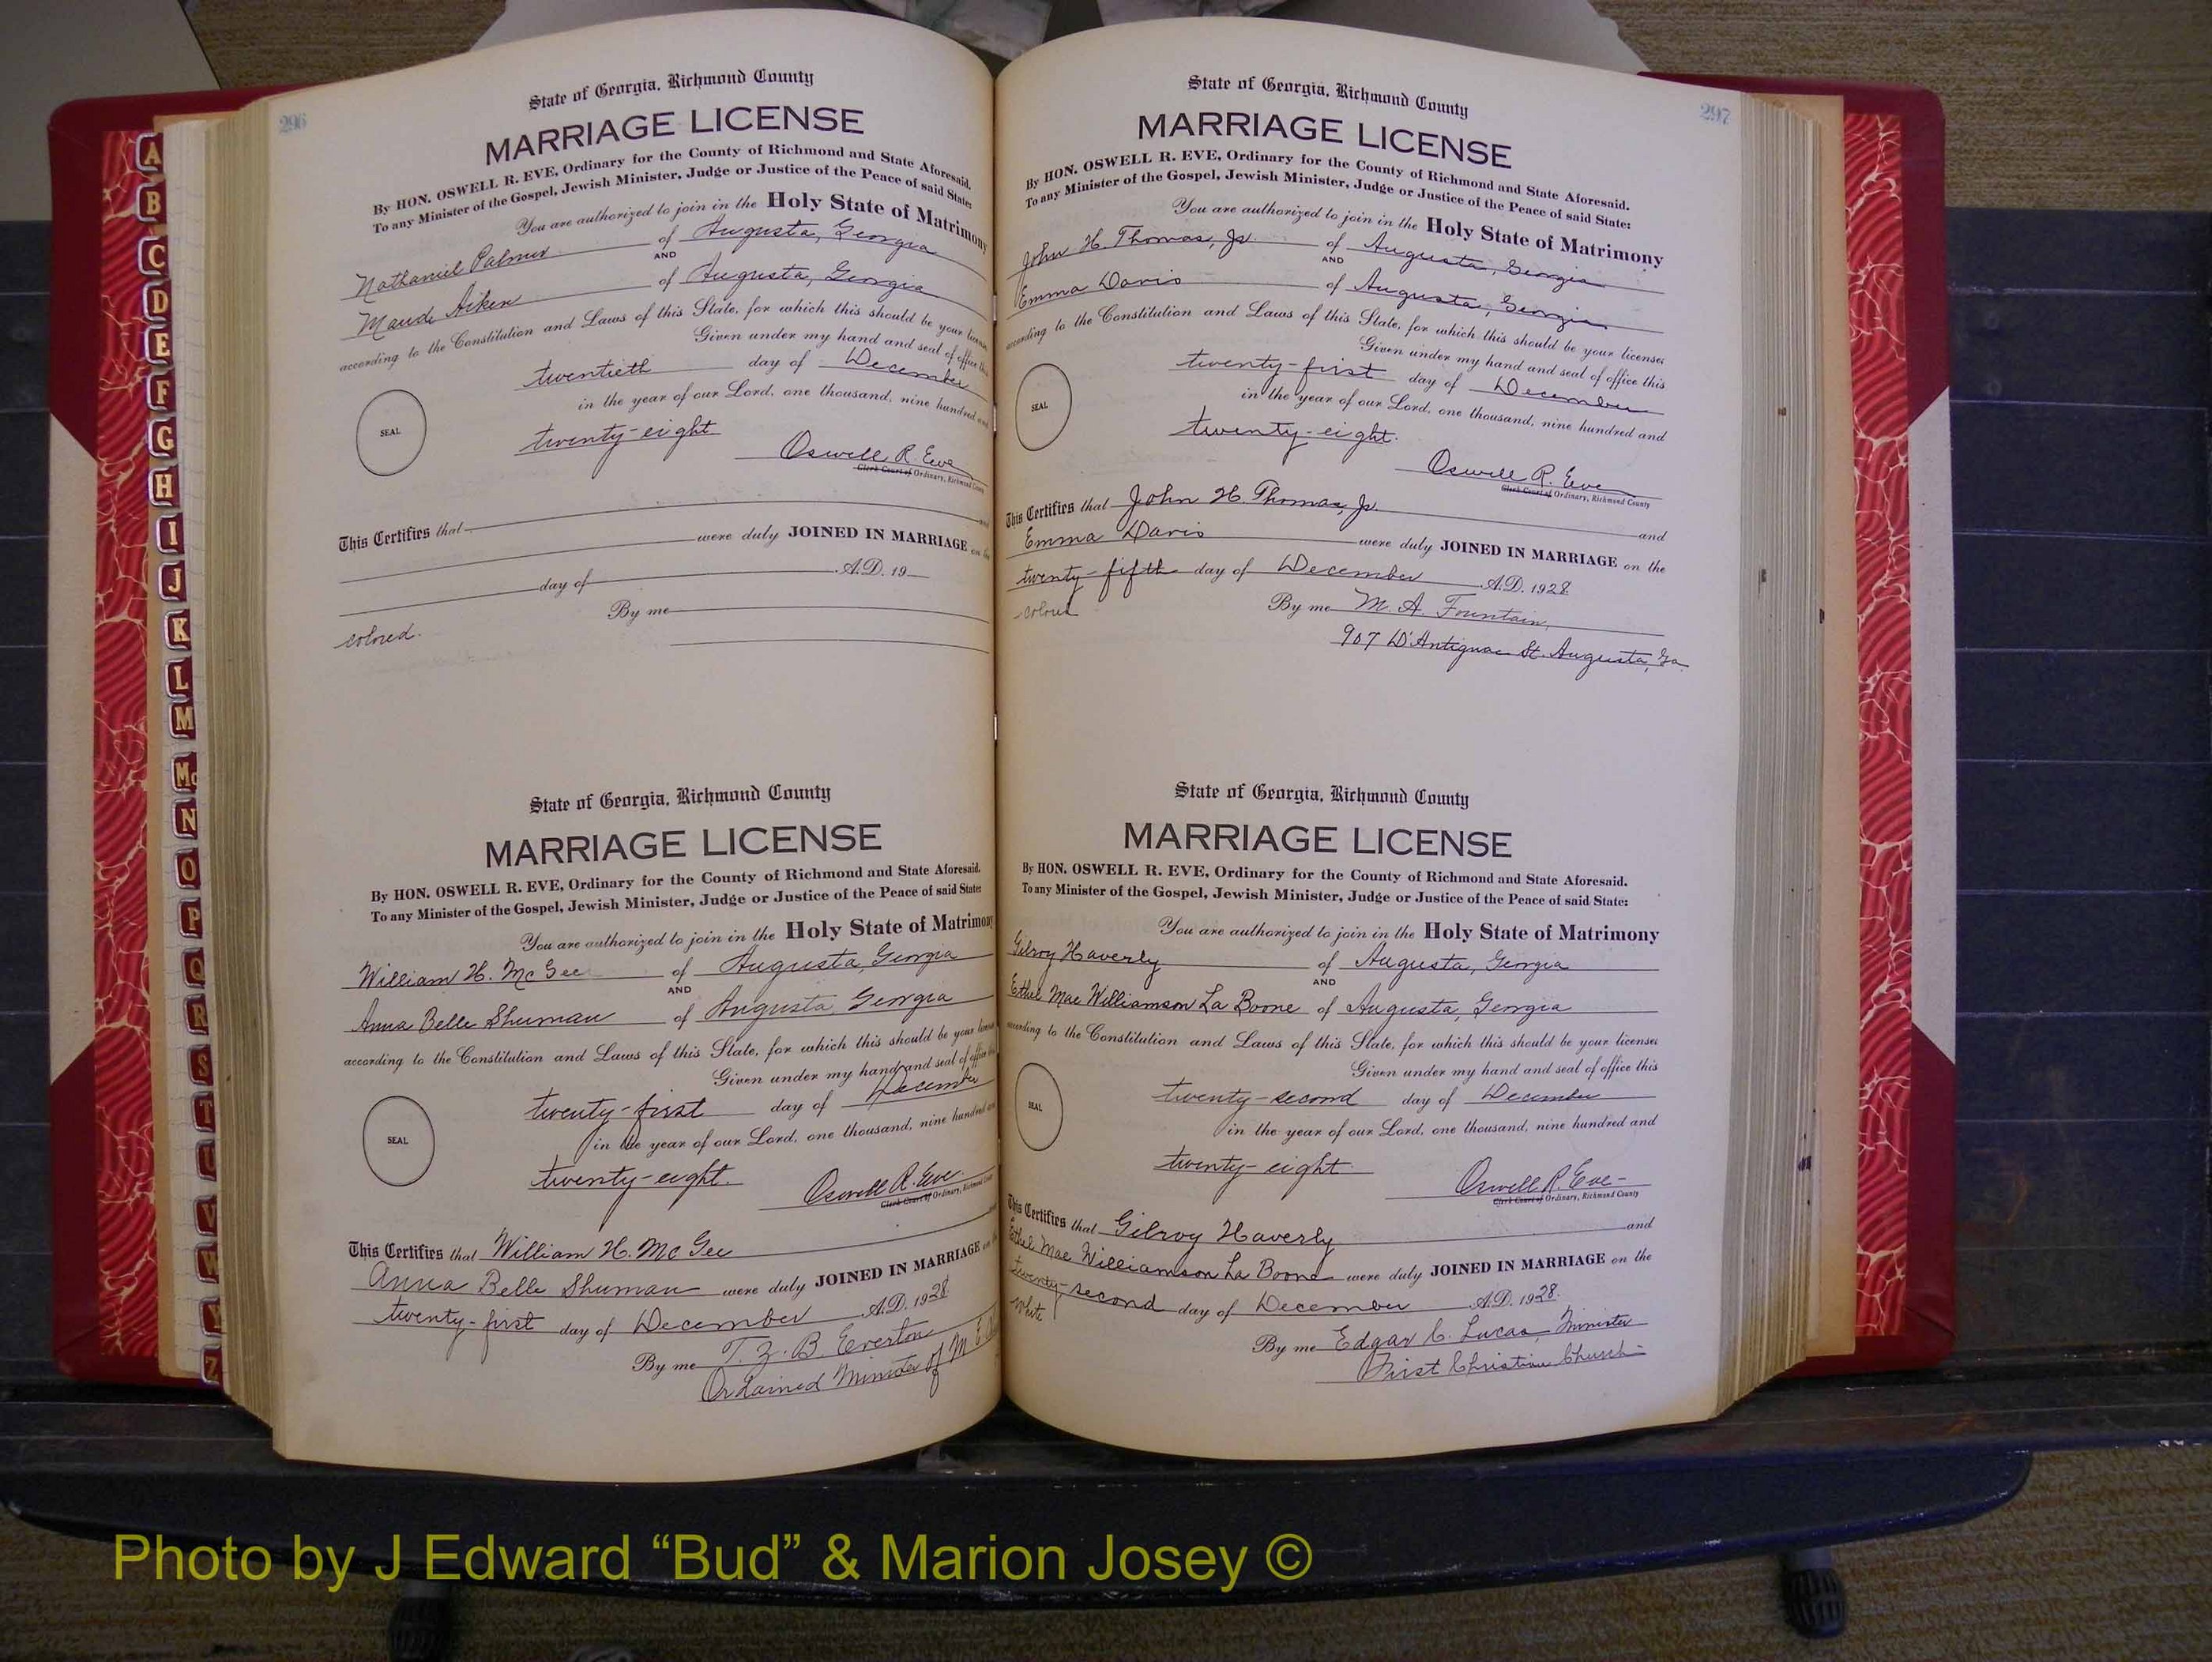 A
B
C
D
E
F
G
H
I
J
K
L
M
Mc
N
O
P
Q
R
S
T
U
V
W
Y
Z
296
State of Georgia, Richmond County
MARRIAGE LICENSE
By HON. OSWELL R. EVE, Ordinary for the County of Richmond and State Aforesaid.
To any Minister of the Gospel, Jewish Minister, Judge or Justice of the Peace of said State:
You are authorized to join in the Holy State of Matrimony
Nathaniel Palmer of Augusta, Georgia
AND
Maude Aiken of Augusta, Georgia
according to the Constitution and Laws of this State, for which this should be your license
Given under my hand and seal of office this
twentieth day of December
in the year of our Lord, one thousand, nine hundred and
SEAL
twenty-eight
Oswell R. Eve
Clerk Court of Ordinary, Richmond County
This Certifies that and
were duly JOINED IN MARRIAGE on the
day of A.D. 19
By me
colored.
State of Georgia, Richmond County
MARRIAGE LICENSE
By HON. OSWELL R. EVE, Ordinary for the County of Richmond and State Aforesaid.
To any Minister of the Gospel, Jewish Minister, Judge or Justice of the Peace of said State:
You are authorized to join in the Holy State of Matrimony
William H. McGee of Augusta, Georgia
AND
Anna Belle Shuman of Augusta, Georgia
according to the Constitution and Laws of this State, for which this should be your license
Given under my hand and seal of office
twenty-first day of December
in the year of our Lord, one thousand, nine hundred and
SEAL
twenty-eight.
Oswell R. Eve.
Clerk Court of Ordinary, Richmond County
This Certifies that William H. McGee
Anna Belle Shuman were duly JOINED IN MARRIAGE on
twenty-first day of December A.D. 1928
By me T. Z. B. Everton
Ordained Minister of M E
297
State of Georgia, Richmond County
MARRIAGE LICENSE
By HON. OSWELL R. EVE, Ordinary for the County of Richmond and State Aforesaid.
To any Minister of the Gospel, Jewish Minister, Judge or Justice of the Peace of said State:
You are authorized to join in the Holy State of Matrimony
John H. Thomas, Jr. of Augusta, Georgia
AND
Emma Davis of Augusta, Georgia
according to the Constitution and Laws of this State, for which this should be your licenses
Given under my hand and seal of office this
twenty-first day of December
in the year of our Lord, one thousand, nine hundred and
SEAL
twenty-eight.
Oswell R. Eve
Clerk Court of Ordinary, Richmond County
This Certifies that John H. Thomas, Jr. and
Emma Davis were duly JOINED IN MARRIAGE on the
twenty-fifth day of December A.D. 1928
colored
By me M. A. Fountain,
907 D'Antignac St. Augusta, Ga.
State of Georgia, Richmond County
MARRIAGE LICENSE
By HON. OSWELL R. EVE, Ordinary for the County of Richmond and State Aforesaid.
To any Minister of the Gospel, Jewish Minister, Judge or Justice of the Peace of said State:
You are authorized to join in the Holy State of Matrimony
Gilroy Haverly of Augusta, Georgia
AND
Ethel Mae Williamson La Boone of Augusta, Georgia
according to the Constitution and Laws of this State, for which this should be your licenses
Given under my hand and seal of office this
twenty-second day of December
in the year of our Lord, one thousand, nine hundred and
SEAL
twenty-eight
Oswell R. Eve-
Clerk Court of Ordinary, Richmond County
This Certifies that Gilroy Haverly and
Ethel Mae Williamson La Boone were duly JOINED IN MARRIAGE on the
twenty-second day of December A.D. 1928.
white
By me Edgar C. Lucas, Minister
First Christian Church
Photo by J Edward “Bud” & Marion Josey ©